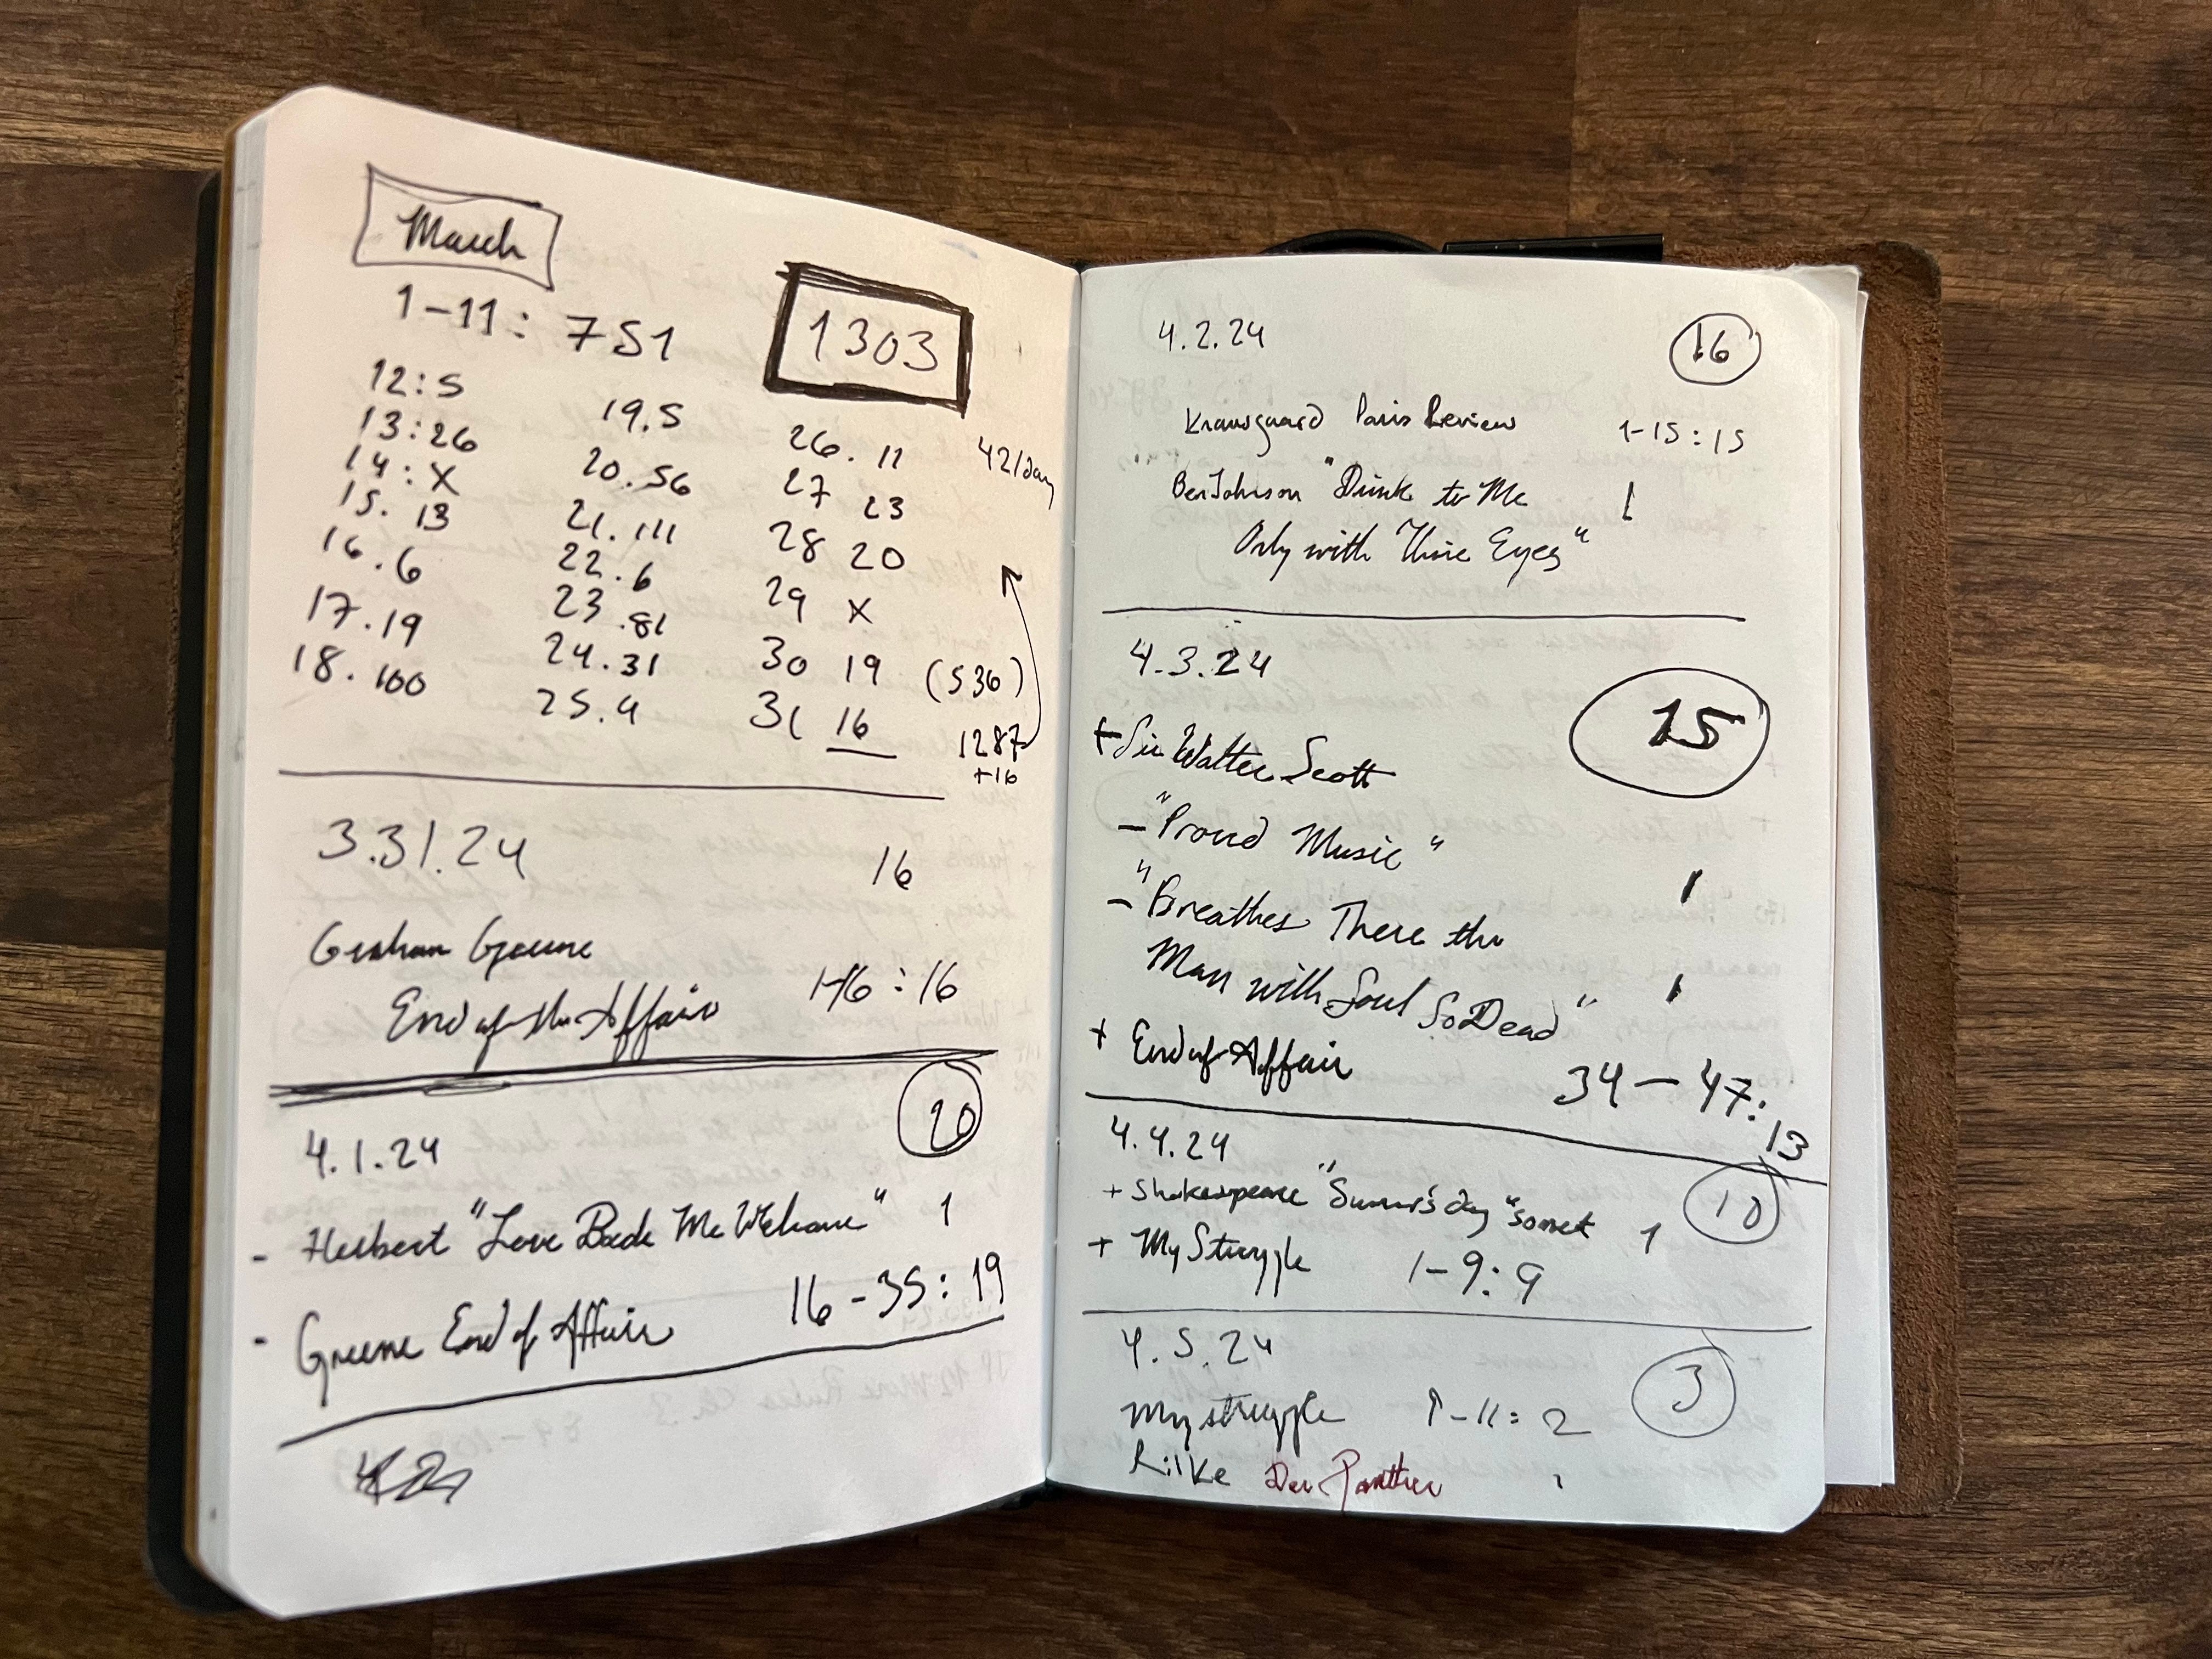 March
1-11: 751
1303
12:5
13:26
14:X
15. 13
16.6
17.19
18.100
19.5
20.56
21.111
22.6
23.81
24.31
25.4
26.11
27 23
28 20
29 X
30 19
31 16
42/day
(536)
1287
+16
3.31.24 16
Graham Greene
End of the Affair 1-16:16
4.1.24 20
- Herbert "Love Bade Me Welcome" 1
- Greene End of Affair 16-35:19
4.2.24 16
Knausgaard Paris Review 1-15:15
Ben Johnson "Drink to Me 1
Only with Thine Eyes"
4.3.24 15
+ Sir Walter Scott
- "Proud Music" 1
- "Breathes There the
Man with Soul So Dead" 1
+ End of Affair 34-47:13
4.4.24 10
+ Shakespeare "Summer's day" sonnet 1
+ My Struggle 1-9:9
4.5.24 3
My struggle 9-11=2
Rilke Der Panther 1